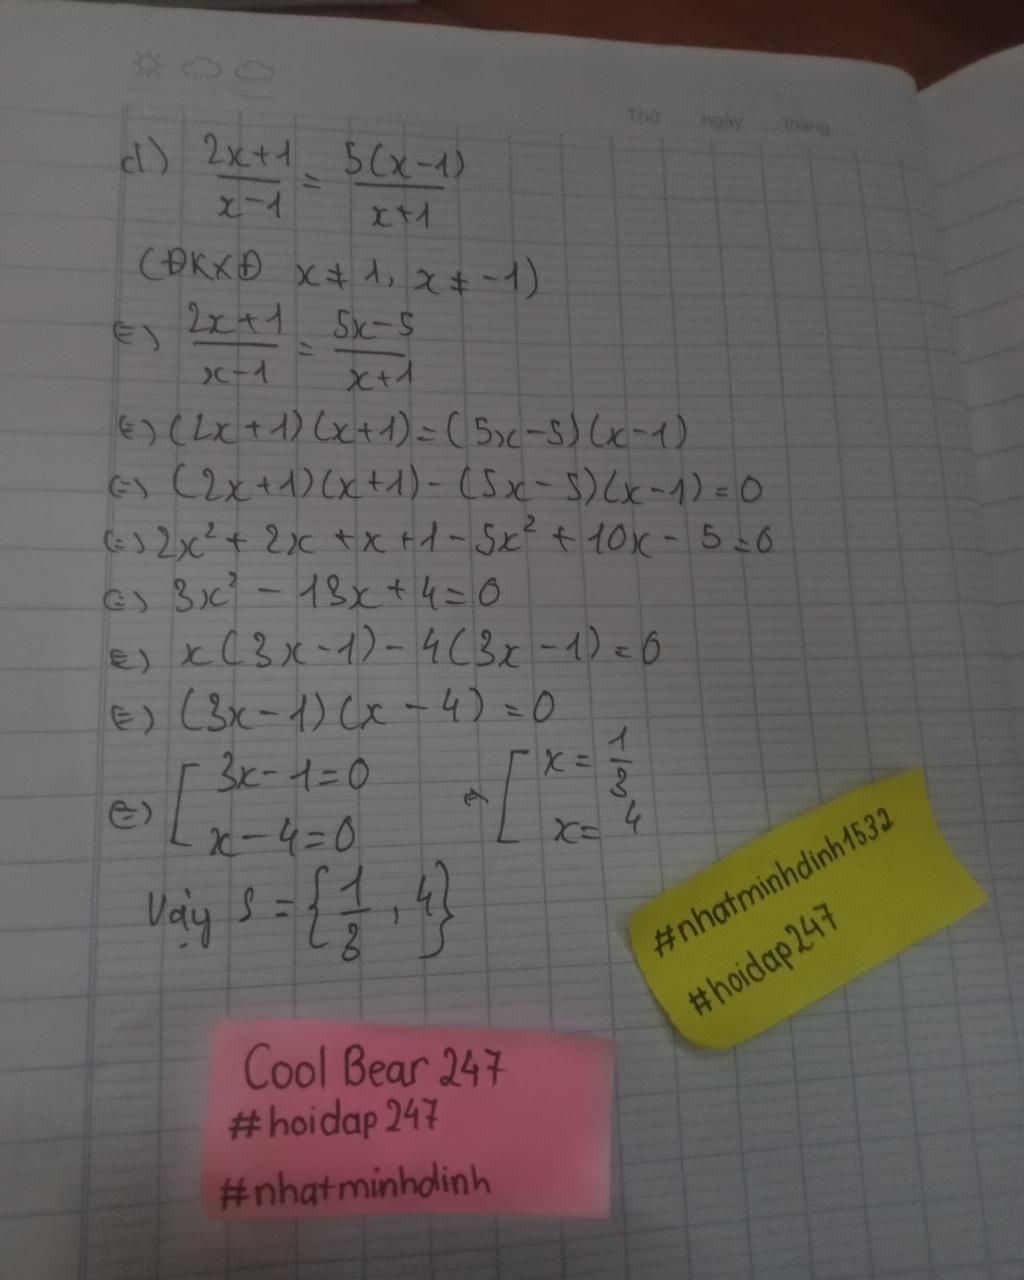 Thứ ngày tháng
d) \frac{2x+1}{x-1} = \frac{5(x-1)}{x+1}
(ĐKXĐ x ≠ 1, x ≠ -1)
⇔ \frac{2x+1}{x-1} = \frac{5x-5}{x+1}
⇔ (2x+1)(x+1) = (5x-5)(x-1)
⇔ (2x+1)(x+1) - (5x-5)(x-1) = 0
⇔ 2x² + 2x + x + 1 - 5x² + 10x - 5 = 0
⇔ 3x² - 13x + 4 = 0
⇔ x(3x-1) - 4(3x-1) = 0
⇔ (3x-1)(x-4) = 0
⇔ [ 3x-1=0 ⇔ [ x = \frac{1}{3}
x-4=0 x= 4
Vậy S = {\frac{1}{3}, 4}
#nhatminhdinh1532
#hoidap247
Cool Bear 247
#hoidap247
#nhatminhdinh